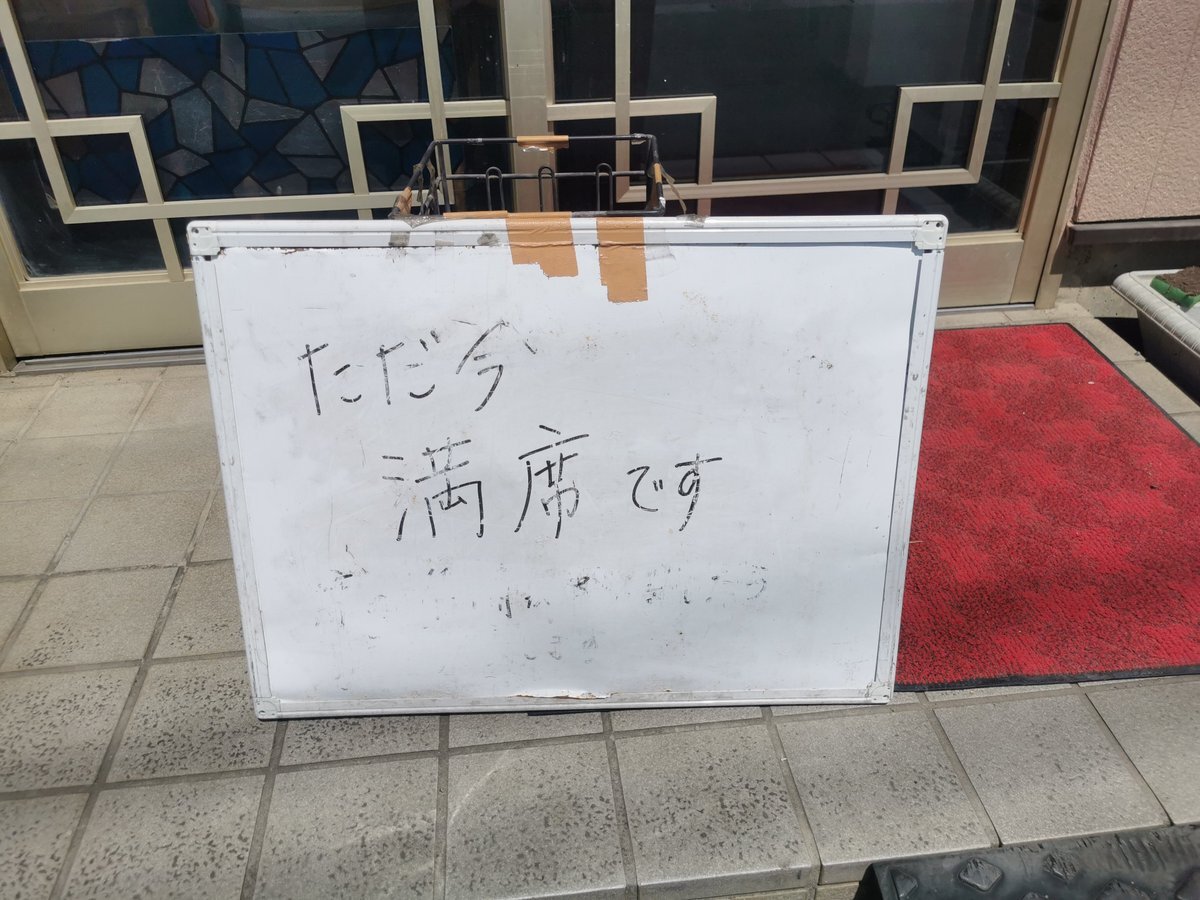 ただ今
満席です